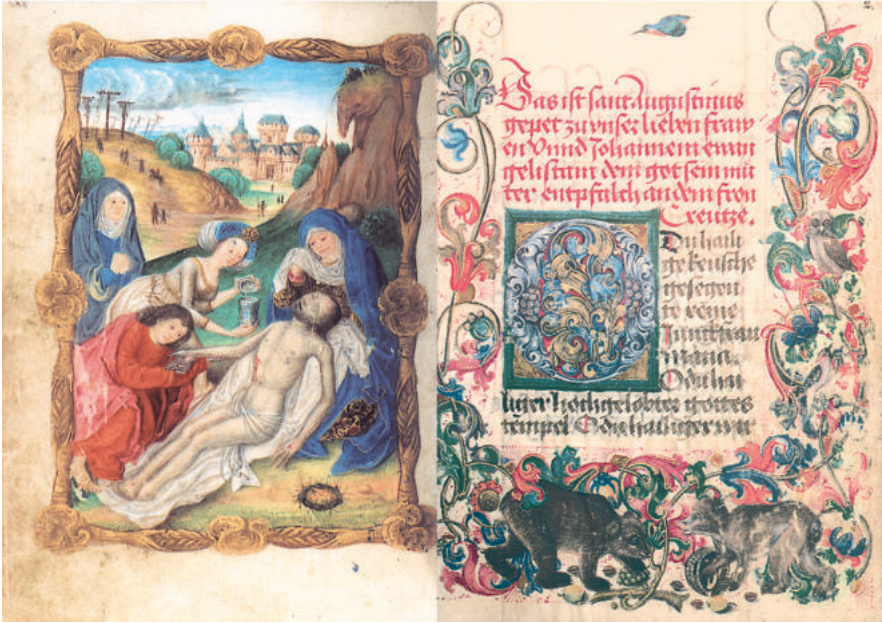 Das ist sant augustinus
gepet zu unser lieben fraw
en Vnnd Johannem ewan
gelistam dem got sein mu
ter entpfalch an dem fron
Creutze.
O Du haili
ge keusche
gesegen
te reine
Junkfrau
maria.
O du hai
liger hochgelobter gottes
tempel O du hailiger wir